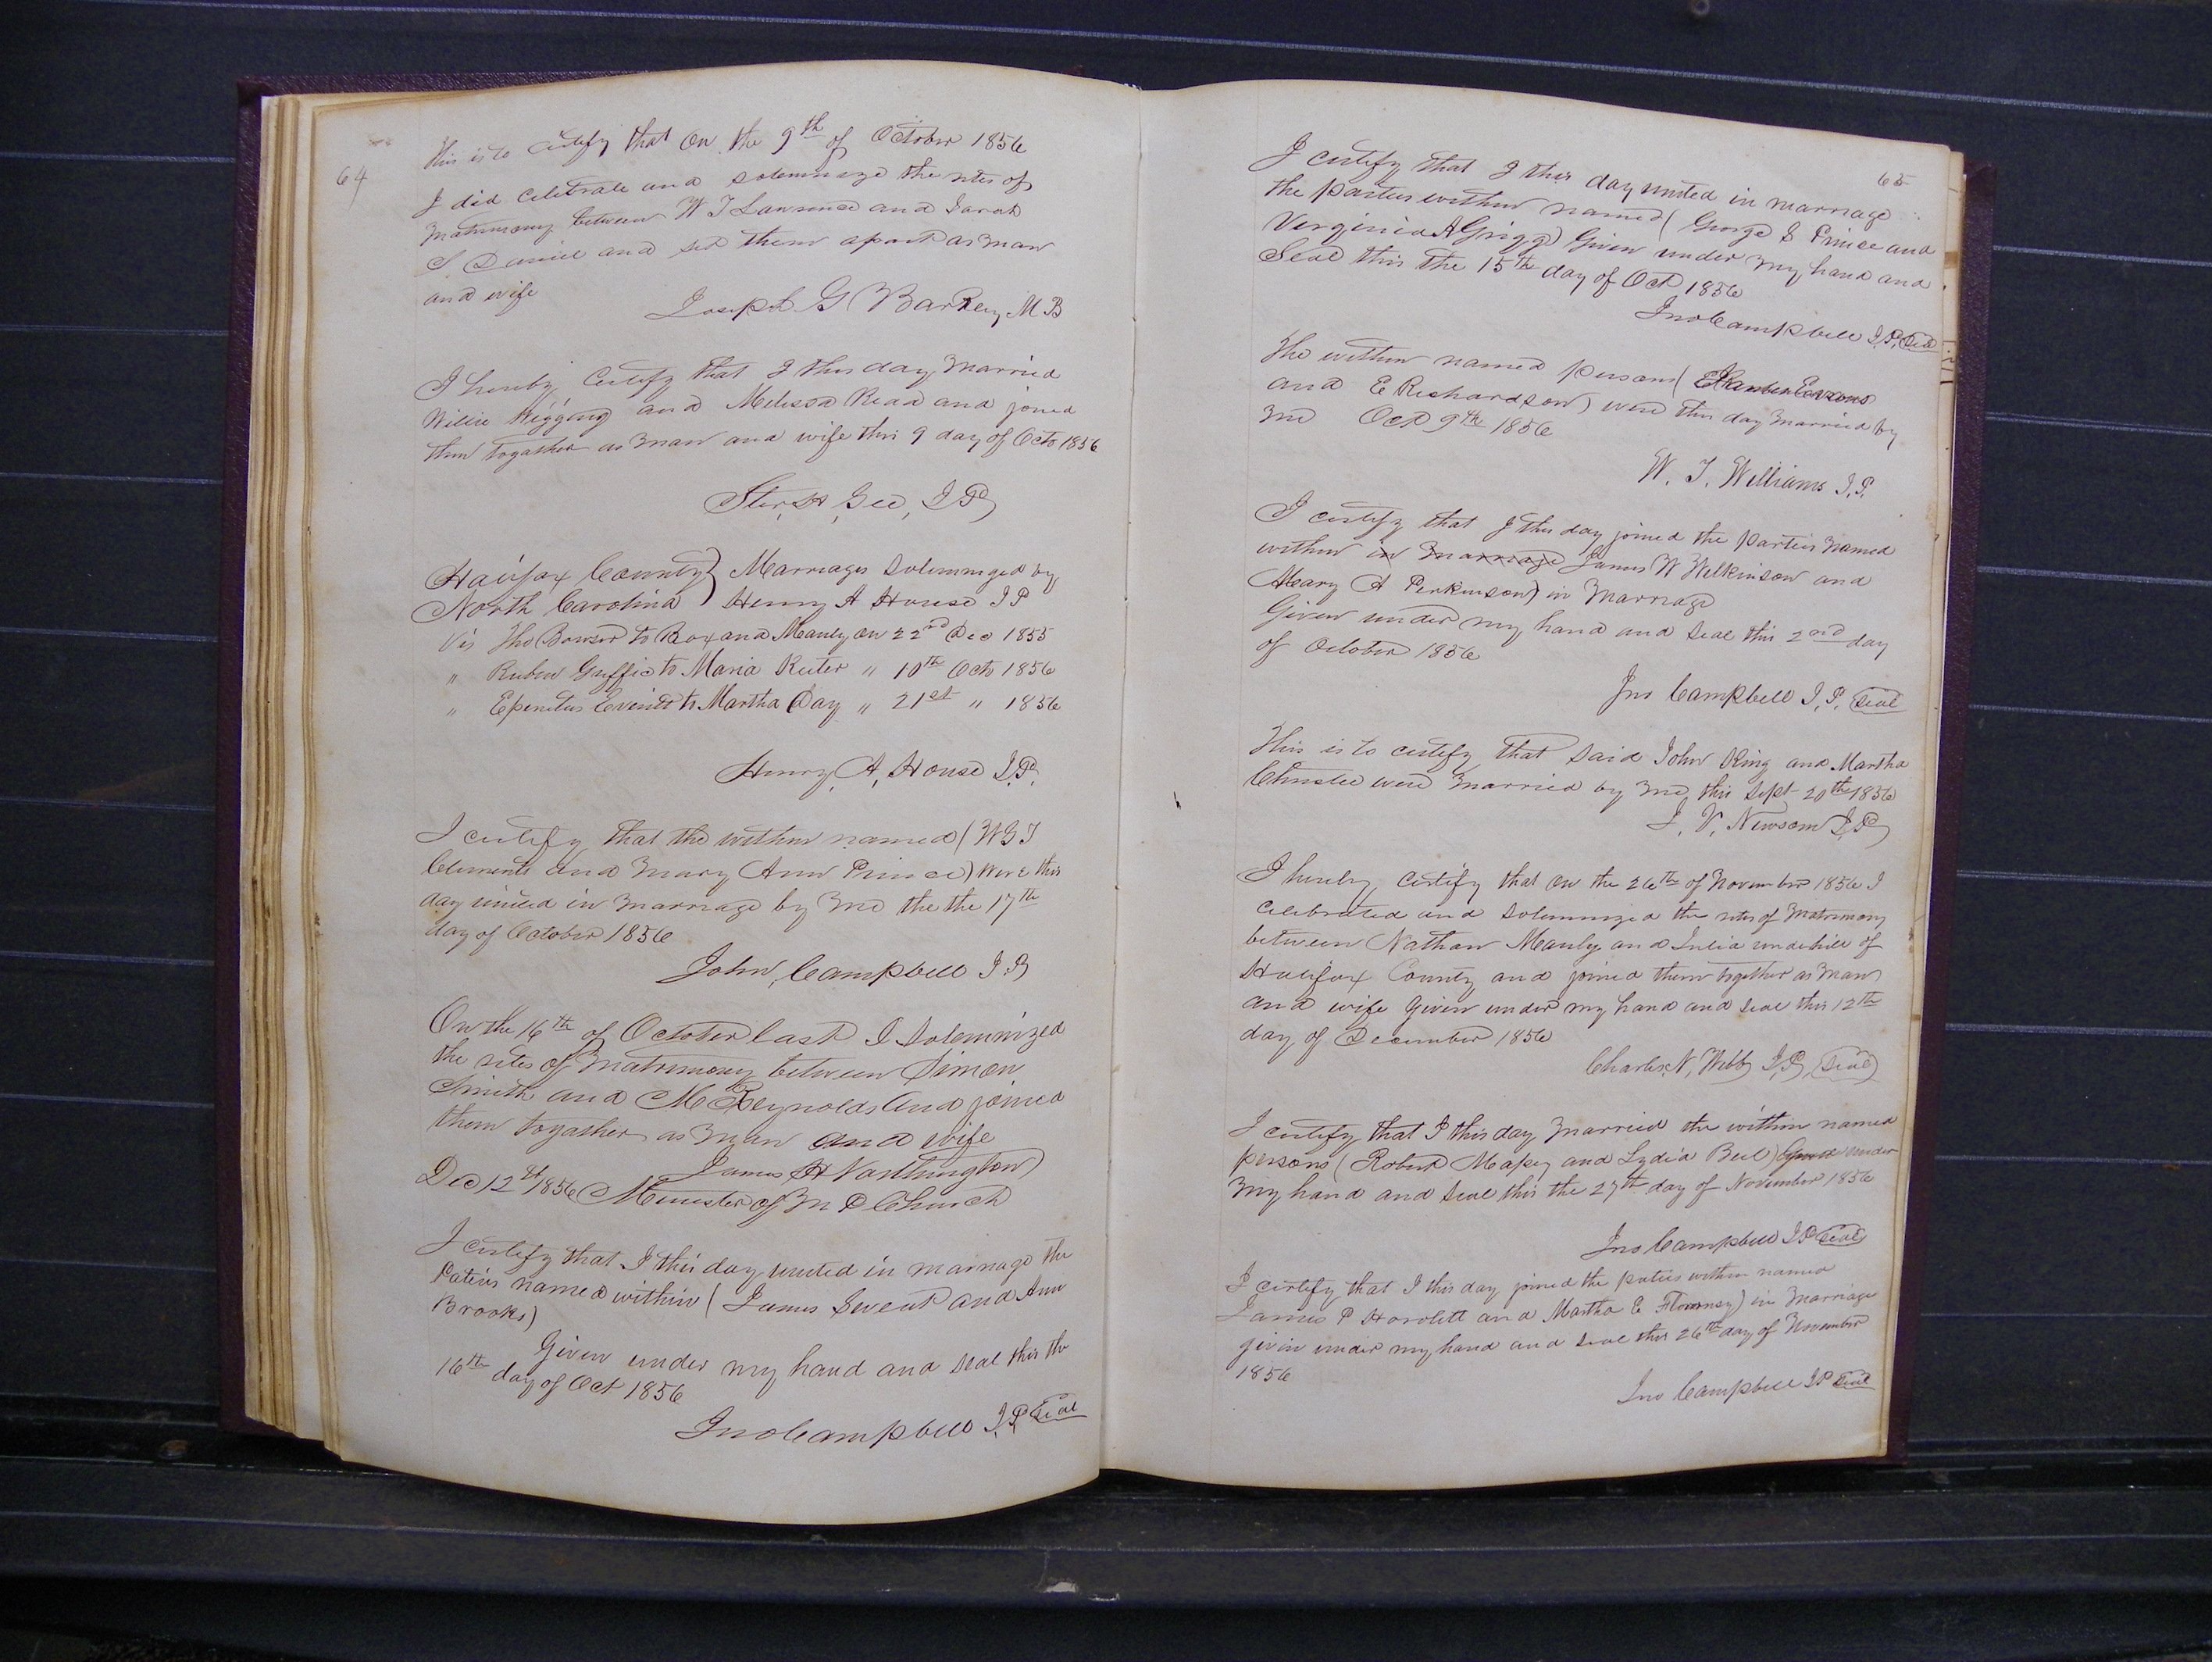 64
This is to certify that on the 9th of October 1856
I did celebrate and solemnize the rites of
Matrimony between W T Lawrence and Sarah
S Daniel and set them apart as man
and wife
Joseph G Barkley M B
I hereby Certify that I this day Married
Willie Wiggins and Melissa Read and joined
them togather as man and wife this 9 day of Octo 1856
Ster. H Gee, J P
Halifax County } Marriages Solemnized by
North Carolina } Henry A House J P
Viz Tho Bowser to Roxana Manly on 22nd Dec 1855
" Ruben Griffis to Maria Reiter " 10th Octo 1856
" Epenetus Everitt to Martha Day " 21st " 1856
Henry, A, House J.P.
I certify that the within named (W G T
Clements and Mary Ann Prince) were this
day united in marriage by me the the 17th
day of October 1856
John, Campbell J P
On the 16th of October last I Solemnized
the rites of Matrimony between Simon
Smith and M Reynolds and joined
them togather as man and wife
James H Northington
Dec 12th 1856 Minister of M P Church
I certify that I this day united in marriage the
Paties named within (James Sweat and Ann
Brooks)
Given under my hand and seal this the
16th day of Oct 1856
Jno Campbell J.P. Seal
65
I certify that I this day united in marriage
the parties within named (George S Prince and
Verginia A Grigg) Given under my hand and
Seal this the 15th day of Oct 1856
Jno Campbell J.P. Seal
The within named persons ( Evans
and E Richardson) were this day married by
me Oct 9th 1856
W. T. Williams J.P.
I certify that I this day joined the parties named
within in marriage James W Wilkinson and
(Mary A Perkinson) in marriage
Given under my hand and seal this 2nd day
of October 1856
Jno Campbell J.P. Seal
This is to certify that said John King and Martha
Christie were married by me this Sept 20th 1856
J. V. Newsom J.P
I hereby, certify that on the 26th of November 1856 I
celebrated and solemnized the rites of Matrimony
between Nathan Manly and Julia undehill of
Halifax County and joined them together as man
and wife Given under my hand and seal this 12th
day of December 1856
Charles N, Webb J,P, Seal
I certify that I this day married the within named
persons (Robert Mapey and Lydia Bell) Given under
my hand and seal this the 27th day of November 1856
Jno Campbell J P Seal
I certify that I this day joined the paties within named
James P Howlett and Martha E Flournoy) in marriage
given under my hand and seal this 26th day of November
1856
Jno Campbell J P Seal